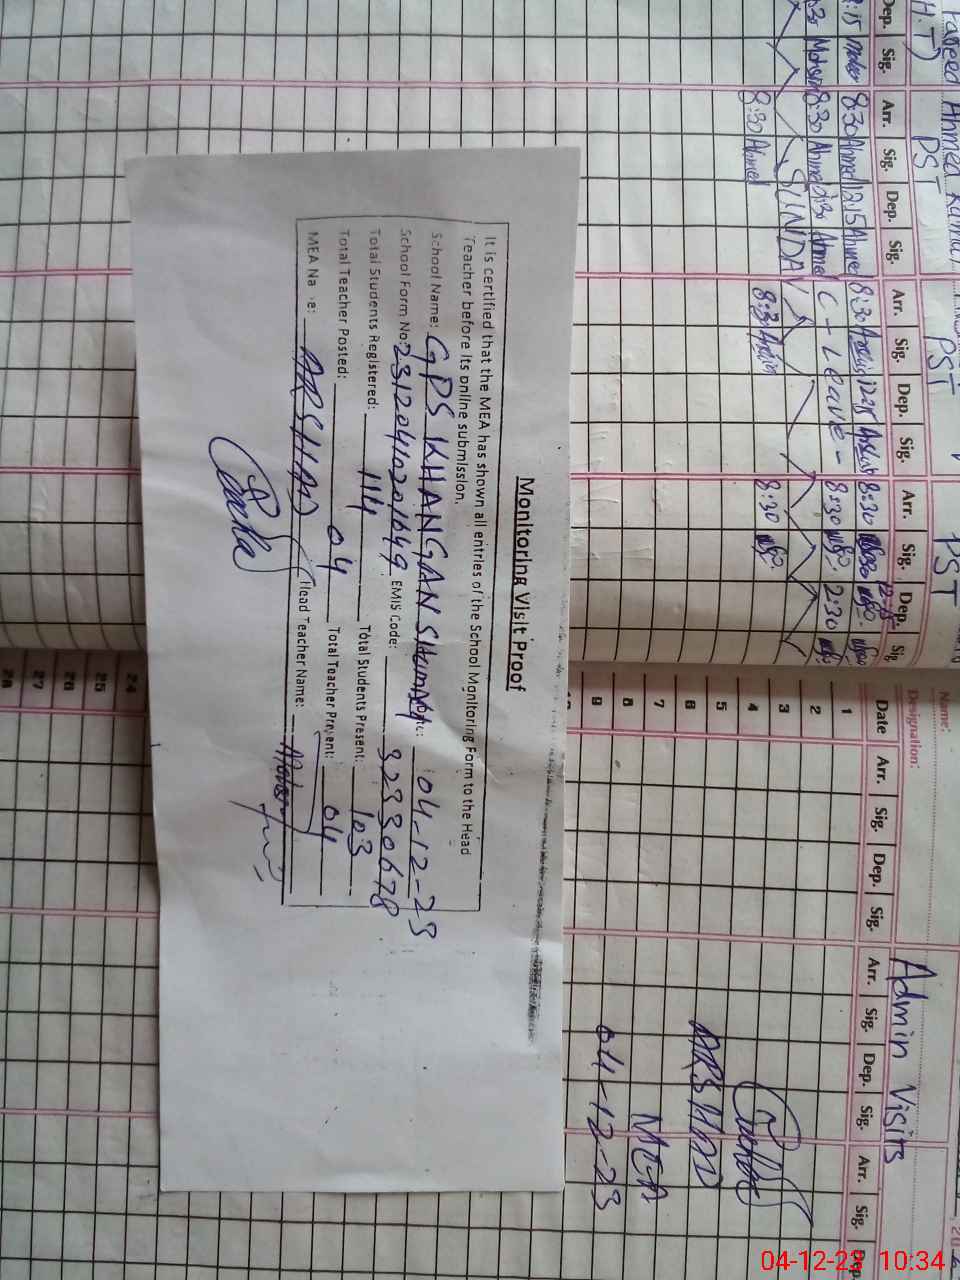 Monitoring Visit Proof
It is certified that the MEA has shown all entries of the School Monitoring Form to the Head
Teacher before its online submission.
School Name: GPS KHANGAN SHUMALI 04-12-23
School Form No: EMIS Code: 32330678
Total Students Registered: 114 Total Students Present: 103
Total Teacher Posted: 04 Total Teacher Present: 04
MEA Na e: ARSHAD Head Teacher Name:
Ahmed
H.T) PST PST PST
Dep. Sig. Arr. Sig. Dep. Sig. Arr. Sig. Dep. Sig. Arr. Sig. Dep. Sig
8:30 Ahmed 12:15 Ahmed 8:30 8:30
Mohsin 8:30 Ahmed 2:30 Ahmed C - Leave - 8:30 2:30
SUNDAY
8:30 Ahmed 8:30 8:30
Name:
Designation:
Admin Visits
Date Arr. Sig. Dep. Sig. Arr. Sig. Dep. Sig. Arr. Sig. Dep
1
2
3
4
5
6 ARSHAD
7 MEA
8
9 04-12-23
24
25
26
27
28
04-12-23 10:34